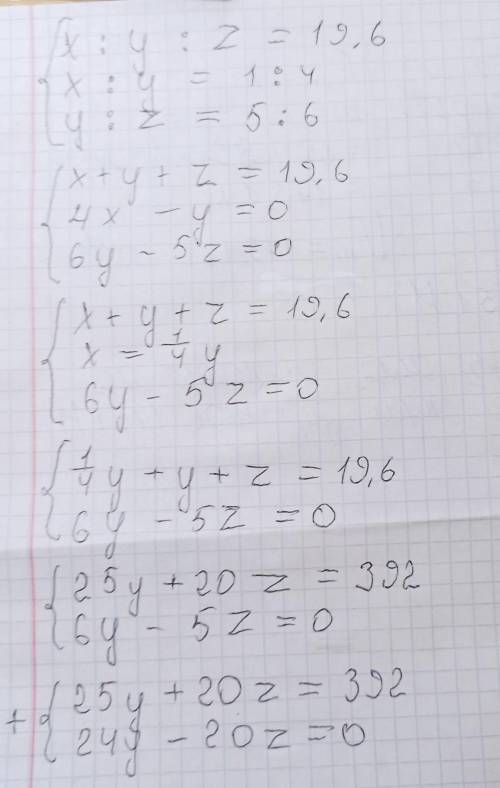 x : y : z = 19,6
x : y = 1 : 4
y : z = 5 : 6
x + y + z = 19,6
4x - y = 0
6y - 5z = 0
x + y + z = 19,6
x = 1/4 y
6y - 5z = 0
1/4 y + y + z = 19,6
6y - 5z = 0
25y + 20z = 392
6y - 5z = 0
+ 25y + 20z = 392
24y - 20z = 0